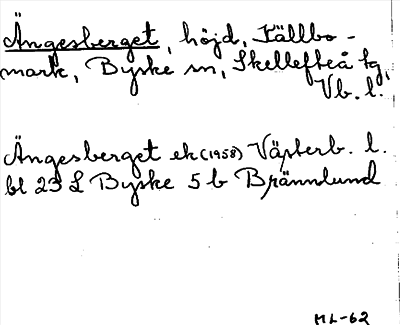 Ängesberget, höjd, Källbo-
mark, Byske sn, Skellefteå tg,
Vb. l.
Ängesberget ek (1958) Västerb. l.
bl 23 L Byske 5 b Brännlund
ML-62